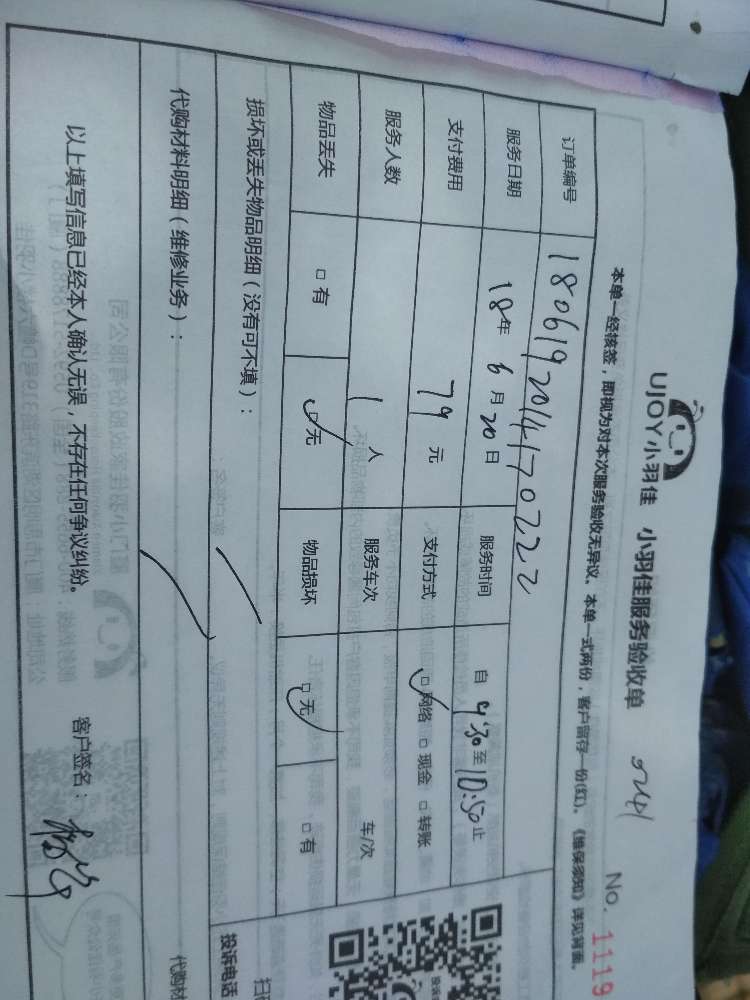 UJOY小羽佳 小羽佳服务验收单 No. 1119
本单一经核签，即视为对本次服务验收无异议。本单一式两份，客户留存一份(红)。《维保须知》详见背面。
订单编号 1806192014170222
服务日期 18年 6月 20日 服务时间 自 9:30 至 10:50 止
支付费用 79 元 支付方式 □网络 □现金 □转账
服务人数 1 人 服务车次 车/次
物品丢失 □有 □无 物品损坏 □无 □有
损坏或丢失物品明细（没有可不填）：
代购材料明细（维修业务）：
以上填写信息已经本人确认无误，不存在任何争议纠纷。 客户签名：
投诉电话
代购材